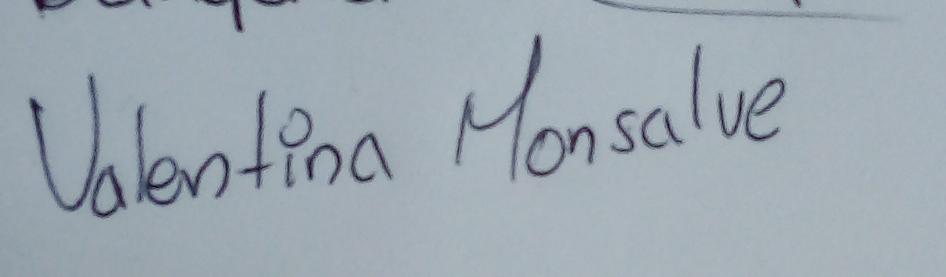 Valentina Monsalve